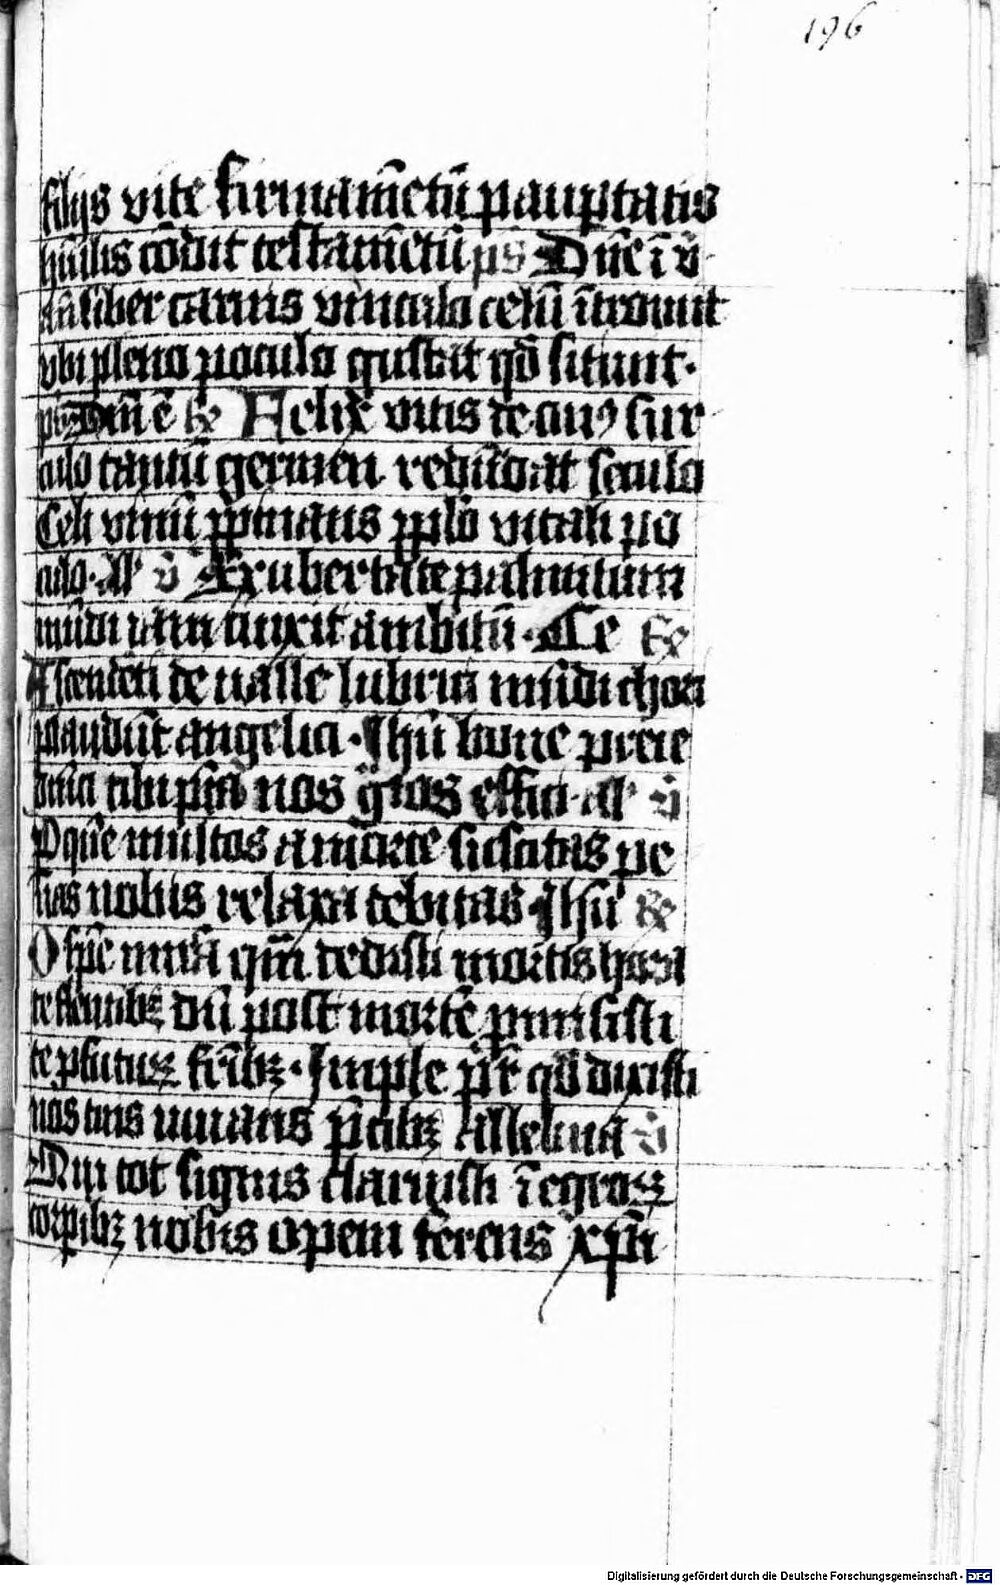 196
filijs vite firmam̄etū paup̲tatis
hūilis cōdit testam̄etū ps̄ Dn̄e ī v̄
liber carnis vinculo celū ītrauit
vbi pleno poculo gustat qđ sitiunt.
Dn̄i ē Felix vitis de cuiꝰ sur
culo tantū germen redūdat seculo
Celi vinū p̱pinans p̱p̱lo vitali po
culo. All' v̄ Ex ubertate palmitum
mūdi iam cinxit ambitū. Ce
Ascendēti de valle lubrica mūdi chora
plaudūt angelica. Jhū bone p̲ce
dn̄ici tibi nos gͥos effici. All' v̄
Qui multos a morte suscitas pe
nas nobis relaxa debitas. Jhū
O spē mirā qm̄ dedisti mortis hora
te flentibꝫ dū post mortē p̱misisti
te p̱futuꝝ fr̄ibꝫ. Imple pr̄ qđ dixisti
nos tuis iuuans p̄cibꝫ Alleluia v̄
Qui tot signis claruisti ī egroꝝ
corp̱ibꝫ nobis opem ferens xp̄i
Digitalisierung gefördert durch die Deutsche Forschungsgemeinschaft - DFG